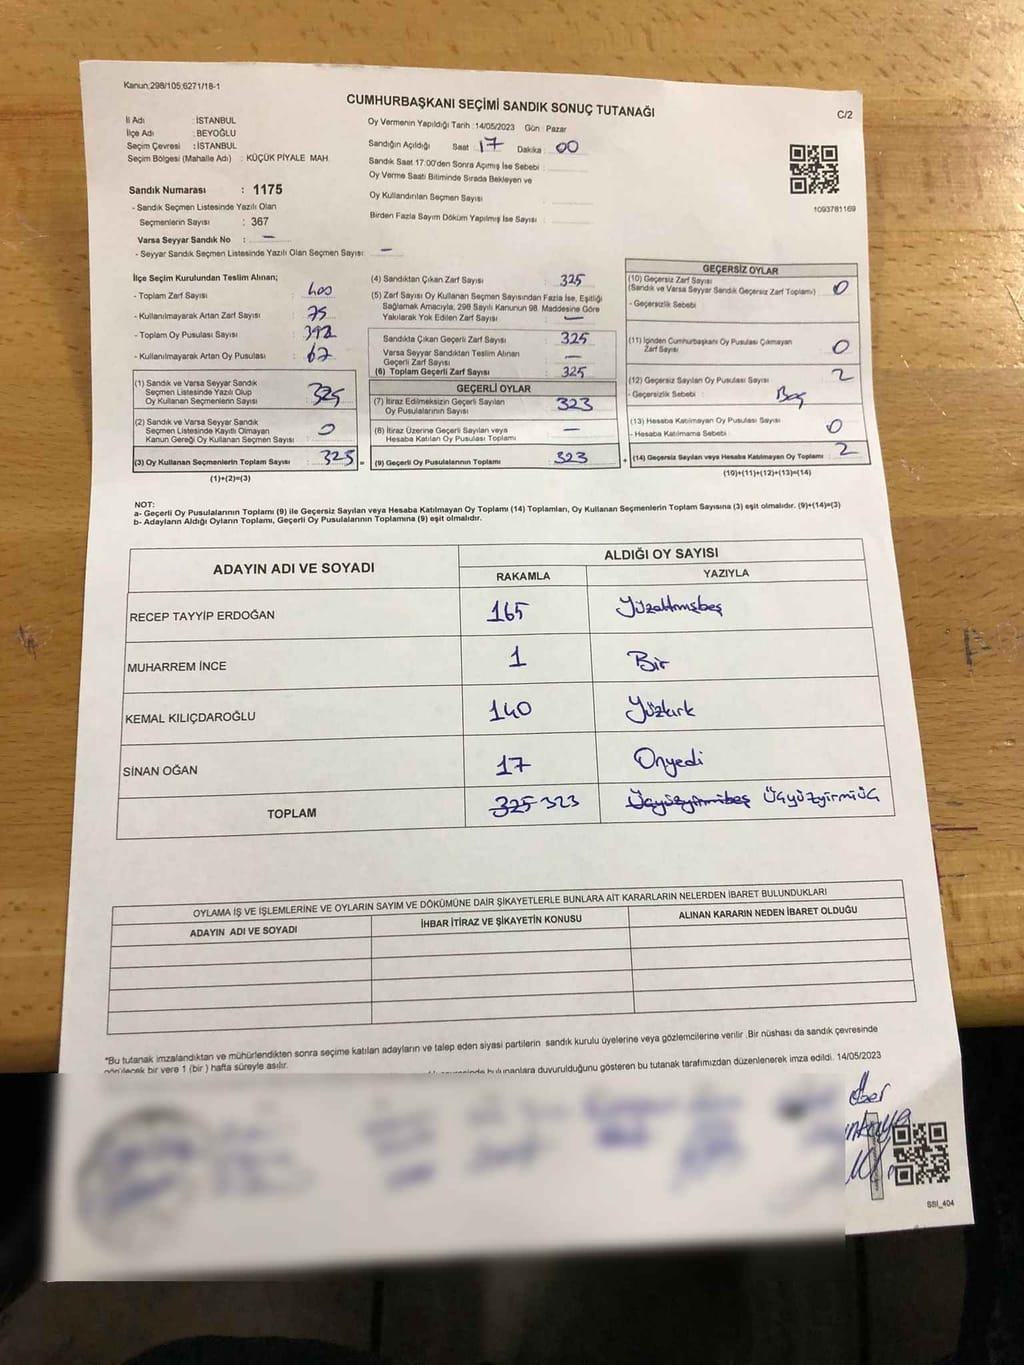 Kanun:298/105;6271/18-1
CUMHURBAŞKANI SEÇİMİ SANDIK SONUÇ TUTANAĞI
C/2
İl Adı : İSTANBUL
İlçe Adı : BEYOĞLU
Seçim Çevresi : İSTANBUL
Seçim Bölgesi (Mahalle Adı) : KÜÇÜK PİYALE MAH.
Sandık Numarası : 1175
- Sandık Seçmen Listesinde Yazılı Olan
Seçmenlerin Sayısı : 367
Varsa Seyyar Sandık No : —
- Seyyar Sandık Seçmen Listesinde Yazılı Olan Seçmen Sayısı: —
Oy Vermenin Yapıldığı Tarih : 14/05/2023 Gün : Pazar
Sandığın Açıldığı Saat 17 Dakika : 00
Sandık Saat 17:00'den Sonra Açımış İse Sebebi :
Oy Verme Saati Bitiminde Sırada Bekleyen ve
Oy Kullandırılan Seçmen Sayısı :
Birden Fazla Sayım Döküm Yapılmış İse Sayısı :
1093781169
İlçe Seçim Kurulundan Teslim Alınan;
- Toplam Zarf Sayısı : 400
- Kullanılmayarak Artan Zarf Sayısı : 75
- Toplam Oy Pusulası Sayısı : 392
- Kullanılmayarak Artan Oy Pusulası : 67
(1) Sandık ve Varsa Seyyar Sandık
Seçmen Listesinde Yazılı Olup
Oy Kullanan Seçmenlerin Sayısı : 325
(2) Sandık ve Varsa Seyyar Sandık
Seçmen Listesinde Kayıtlı Olmayan
Kanun Gereği Oy Kullanan Seçmen Sayısı : 0
(3) Oy Kullanan Seçmenlerin Toplam Sayısı : 325
(1)+(2)=(3)
(4) Sandıktan Çıkan Zarf Sayısı : 325
(5) Zarf Sayısı Oy Kullanan Seçmen Sayısından Fazla İse, Eşitliği
Sağlamak Amacıyla, 298 Sayılı Kanunun 98. Maddesine Göre
Yakılarak Yok Edilen Zarf Sayısı : —
Sandıkta Çıkan Geçerli Zarf Sayısı : 325
Varsa Seyyar Sandıktan Teslim Alınan
Geçerli Zarf Sayısı : —
(6) Toplam Geçerli Zarf Sayısı : 325
GEÇERLİ OYLAR
(7) İtiraz Edilmeksizin Geçerli Sayılan
Oy Pusulalarının Sayısı : 323
(8) İtiraz Üzerine Geçerli Sayılan veya
Hesaba Katılan Oy Pusulası Toplamı : —
= (9) Geçerli Oy Pusulalarının Toplamı : 323
GEÇERSİZ OYLAR
(10) Geçersiz Zarf Sayısı
(Sandık ve Varsa Seyyar Sandık Geçersiz Zarf Toplamı) : 0
- Geçersizlik Sebebi :
(11) İçinden Cumhurbaşkanı Oy Pusulası Çıkmayan
Zarf Sayısı : 0
(12) Geçersiz Sayılan Oy Pusulası Sayısı : 2
- Geçersizlik Sebebi : Boş
(13) Hesaba Katılmayan Oy Pusulası Sayısı : 0
- Hesaba Katılmama Sebebi :
+ (14) Geçersiz Sayılan veya Hesaba Katılmayan Oy Toplamı : 2
(10)+(11)+(12)+(13)=(14)
NOT:
a- Geçerli Oy Pusulalarının Toplamı (9) ile Geçersiz Sayılan veya Hesaba Katılmayan Oy Toplamı (14) Toplamları, Oy Kullanan Seçmenlerin Toplam Sayısına (3) eşit olmalıdır. (9)+(14)=(3)
b- Adayların Aldığı Oyların Toplamı, Geçerli Oy Pusulalarının Toplamına (9) eşit olmalıdır.
ADAYIN ADI VE SOYADI ALDIĞI OY SAYISI
RAKAMLA YAZIYLA
RECEP TAYYİP ERDOĞAN 165 Yüzaltmışbeş
MUHARREM İNCE 1 Bir
KEMAL KILIÇDAROĞLU 140 Yüzkırk
SİNAN OĞAN 17 Onyedi
TOPLAM 325 323 Üçyüzyirmibeş ÜçyÜzyirmiüç
OYLAMA İŞ VE İŞLEMLERİNE VE OYLARIN SAYIM VE DÖKÜMÜNE DAİR ŞİKAYETLERLE BUNLARA AİT KARARLARIN NELERDEN İBARET BULUNDUKLARI
ADAYIN ADI VE SOYADI İHBAR İTİRAZ VE ŞİKAYETİN KONUSU ALINAN KARARIN NEDEN İBARET OLDUĞU
*Bu tutanak imzalandıktan ve mühürlendikten sonra seçime katılan adayların ve talep eden siyasi partilerin sandık kurulu üyelerine veya gözlemcilerine verilir .Bir nüshası da sandık çevresinde
görülecek bir yere 1 (bir ) hafta süreyle asılır.
bulunanlara duyurulduğunu gösteren bu tutanak tarafımızdan düzenlenerek imza edildi. 14/05/2023
SSI_404